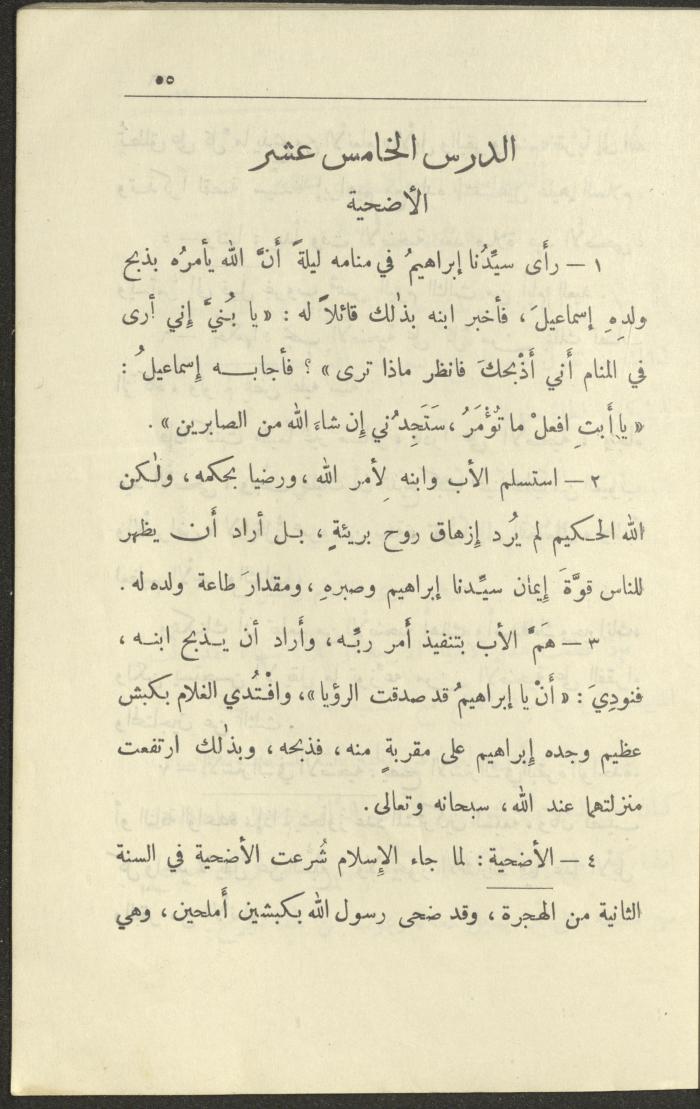 ٥٥
الدرس الخامس عشر
الأضحية
١ – رأَى سيِّدُنا إبراهيمُ في منامه ليلةً أَنَّ الله يأمرُه بذبح
ولدِهِ إسماعيلَ، فأخبر ابنه بذٰلك قائلاً له : « يا بُنيَّ إني أرى
في المنام أَني أَذْبحكَ فانظر ماذا ترى » ؟ فأجابـه إسماعيلُ :
« يا أَبتِ افعلْ ما تُؤْمَرُ ، سَتَجِدُني إن شاءَ الله من الصابرين » .
٢ – استسلم الأب وابنه لأمر الله ، ورضيا بحكمه ، ولٰكن
الله الحكيم لم يُرد إزهاق روح بريئةٍ ، بل أراد أَن يظهر
للناس قوَّةَ إيمان سيِّدنا إبراهيم وصبرهِ ، ومقدارَ طاعة ولده له .
٣ – هَمَّ الأب بتنفيذ أَمر ربِّه ، وأَراد أن يذبح ابنه ،
فنودِيَ : « أَنْ يا إبراهيمُ قد صدقت الرؤيا » ، وافْتُدي الغلام بكبش
عظيم وجده إبراهيم على مقربةٍ منه ، فذبحه ، وبذٰلك ارتفعت
منزلتهما عند الله ، سبحانه وتعالى .
٤ – الأضحية : لما جاء الإسلام شُرعت الأضحية في السنة
الثانية من الهجرة ، وقد ضحى رسول الله بكبشين أَملحين ، وهي